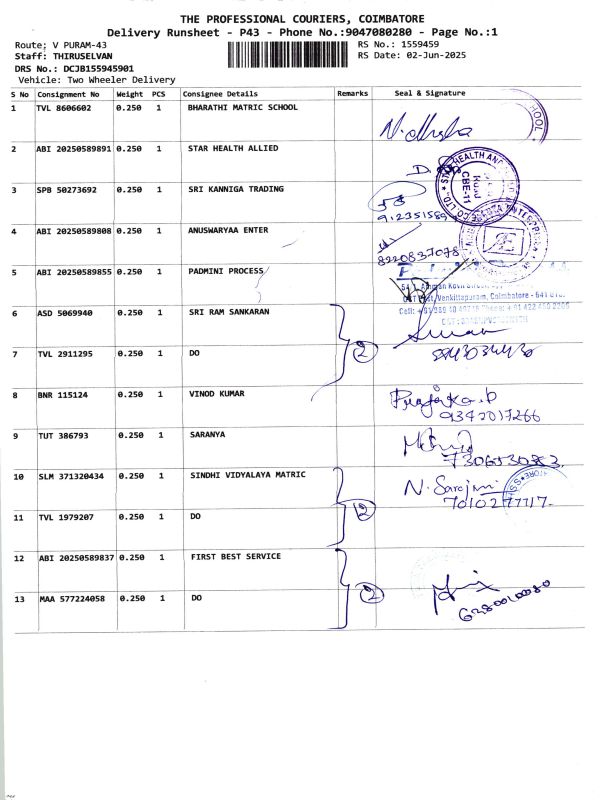 THE PROFESSIONAL COURIERS, COIMBATORE
Delivery Runsheet - P43 - Phone No.:9047080280 - Page No.:1
Route; V PURAM-43
RS No.: 1559459
Staff: THIRUSELVAN
RS Date: 02-Jun-2025
DRS No.: DCJB155945901
Vehicle: Two Wheeler Delivery
S No Consignment No Weight PCS Consignee Details Remarks Seal & Signature
1 TVL 8606602 0.250 1 BHARATHI MATRIC SCHOOL
HOOL
2 ABI 20250589891 0.250 1 STAR HEALTH ALLIED
STAR HEALTH AN
CO LTD.
CBE-11
3 SPB 50273692 0.250 1 SRI KANNIGA TRADING
4 ABI 20250589808 0.250 1 ANUSWARYAA ENTER
8220837078
5 ABI 20250589855 0.250 1 PADMINI PROCESS
Venkittapuram, Coimbatore - 641
6 ASD 5069940 0.250 1 SRI RAM SANKARAN
2
7 TVL 2911295 0.250 1 DO
8 BNR 115124 0.250 1 VINOD KUMAR
9342017266
9 TUT 386793 0.250 1 SARANYA
10 SLM 371320434 0.250 1 SINDHI VIDYALAYA MATRIC
N. Sarojini
7010277117
2
11 TVL 1979207 0.250 1 DO
12 ABI 20250589837 0.250 1 FIRST BEST SERVICE
2
13 MAA 577224058 0.250 1 DO